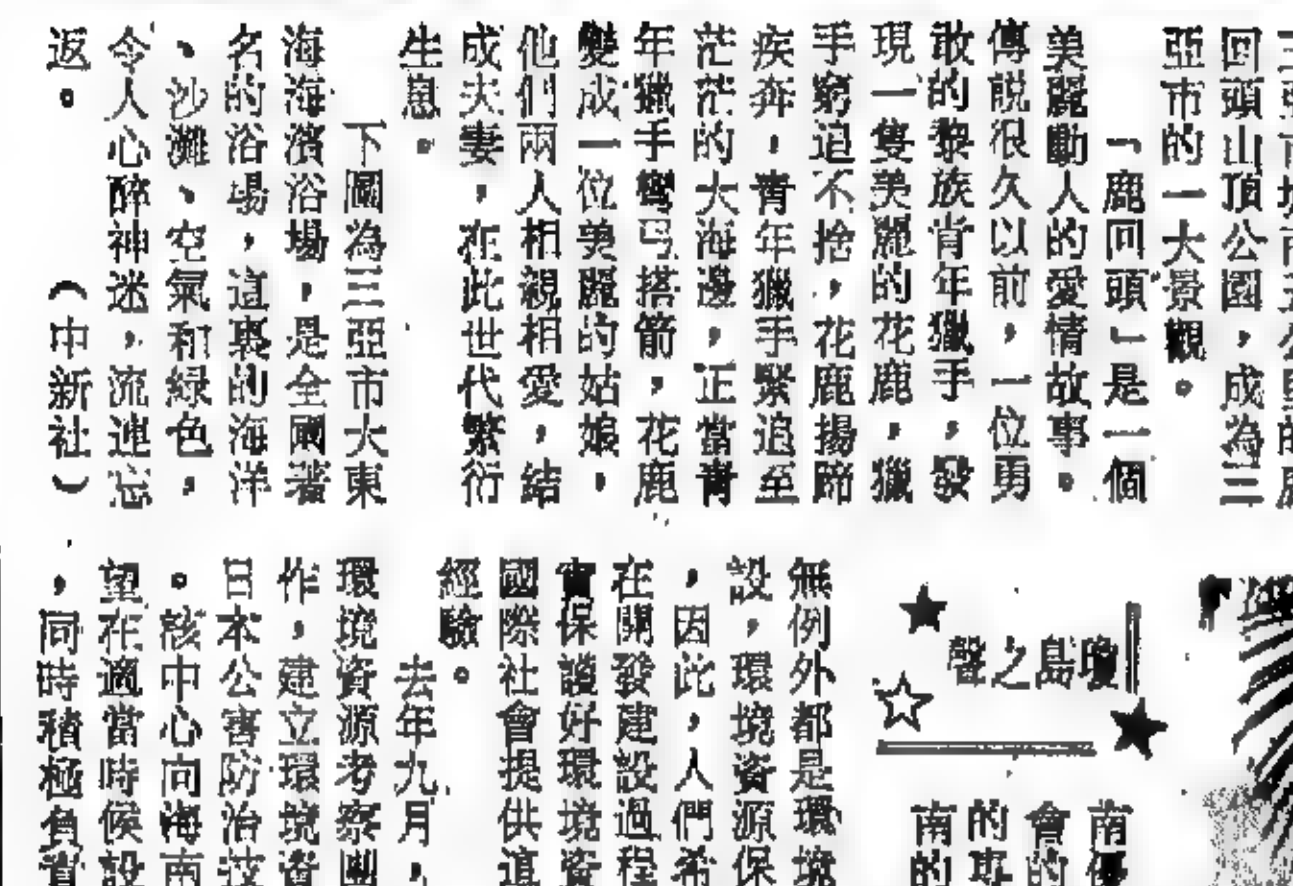 回頭山頂公園，成為三
亞市的一大景觀。
「鹿回頭」是一個
美麗動人的愛情故事。
傳説很久以前，一位勇
敢的黎族青年獵手，發
現一隻美麗的花鹿，獵
手窮追不捨，花鹿揚蹄
疾奔，青年獵手緊追至
茫茫的大海邊，正當青
年獵手彎弓搭箭，花鹿
變成一位美麗的姑娘，
他們兩人相親相愛，結
成夫妻，在此世代繁衍
生息。
下圖為三亞市大東
海海濱浴場，是全國著
名的浴場，這裏的海洋
、沙灘、空氣和綠色，
令人心醉神迷，流連忘
返。（中新社）
瓊島之聲
南優
會的
的專
南的
無例外都是環境
設，環境資源保
，因此，人們希
在開發建設過程
實保護好環境資
國際社會提供這
經驗。
去年九月，
環境資源考察團
作，建立環境資
日本公害防治技
。該中心向海南
望在適當時候設
，同時積極負責